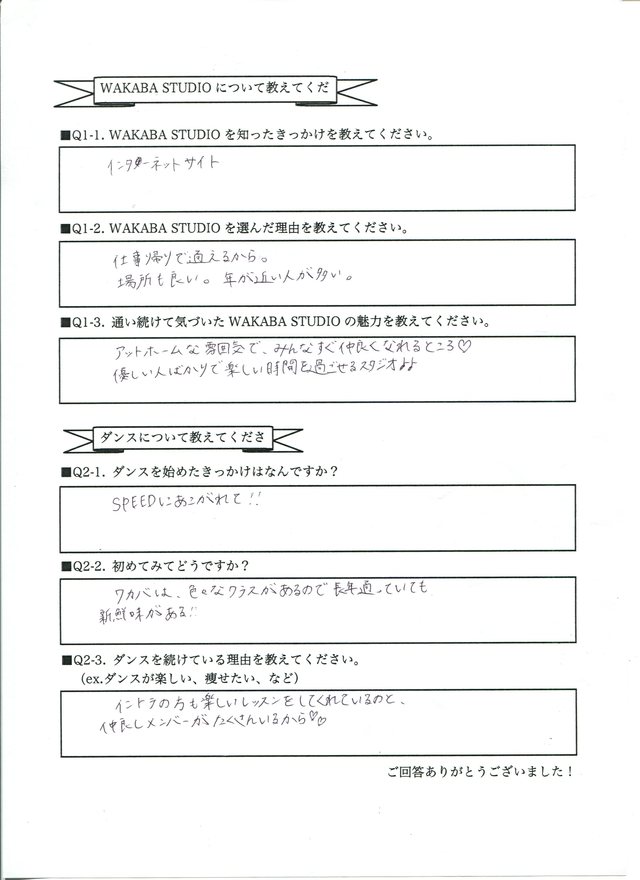 WAKABA STUDIO について教えてくだ
■Q1-1. WAKABA STUDIO を知ったきっかけを教えてください。
インターネットサイト
■Q1-2. WAKABA STUDIO を選んだ理由を教えてください。
仕事帰りで通えるから。
場所も良い。年が近い人が多い。
■Q1-3. 通い続けて気づいた WAKABA STUDIO の魅力を教えてください。
アットホームな雰囲気で、みんなすぐ仲良くなれるところ♡
優しい人ばかりで楽しい時間を過ごせるスタジオ♪♪
ダンスについて教えてくださ
■Q2-1. ダンスを始めたきっかけはなんですか？
SPEEDにあこがれて!!
■Q2-2. 初めてみてどうですか？
ワカバは、色々なクラスがあるので長年通っていても
新鮮味がある!!
■Q2-3. ダンスを続けている理由を教えてください。
(ex.ダンスが楽しい、痩せたい、など)
イントラの方も楽しいレッスンをしてくれているのと、
仲良しメンバーがたくさんいるから♡♡
ご回答ありがとうございました！